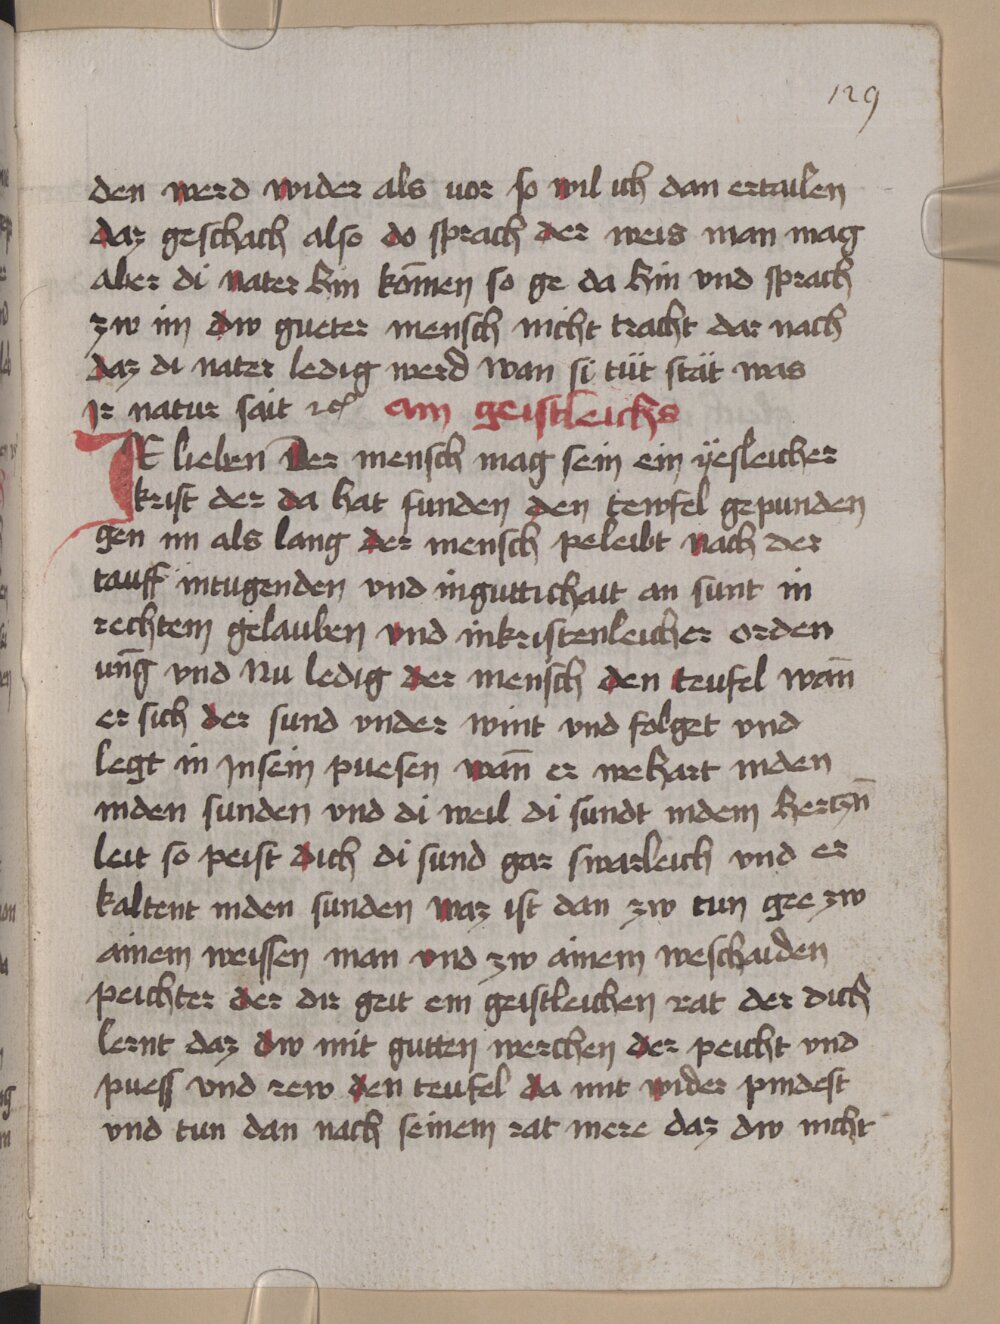 129
den werd wider als vor so wil ich dan ertailen
daz geschach also do sprach der weis man mag
aber di nater hin kōmen so ge da hin vnd sprach
zw im dw gueter mensch nicht tracht dar nach
daz di nater ledig werd wan si tüt stät was
Jr natur sait ⁊cͤ ain geistleichs
IR lieben Der mensch mag sein ein yesleicher
krist der da hat funden den tewfel gepunden
gen im als lang der mensch peleibt nach der
tauff intugenden vnd inguttichait an sunt in
rechtem gelauben vnd inkristenleicher orden
unḡ vnd Nu ledig der mensch den teufel wan̄
er sich der sund vnder wint vnd folget vnd
legt in Jnsein puesen wan̄ er wehart inden
inden sunden vnd di weil di sundt indem hertzn̄
leit so peist dich di sund gar swarleich vnd er
kaltent inden sunden waz ist dan zw tun gee zw
ainem weissen man vnd zw ainem weschaiden
peichter der dir geit ein geistleichen rat der dich
lernt daz dw mit gutten werchen der peicht vnd
puess vnd rew den teufel da mit wider pindest
vnd tun dan nach seinem rat mere daz dw nicht